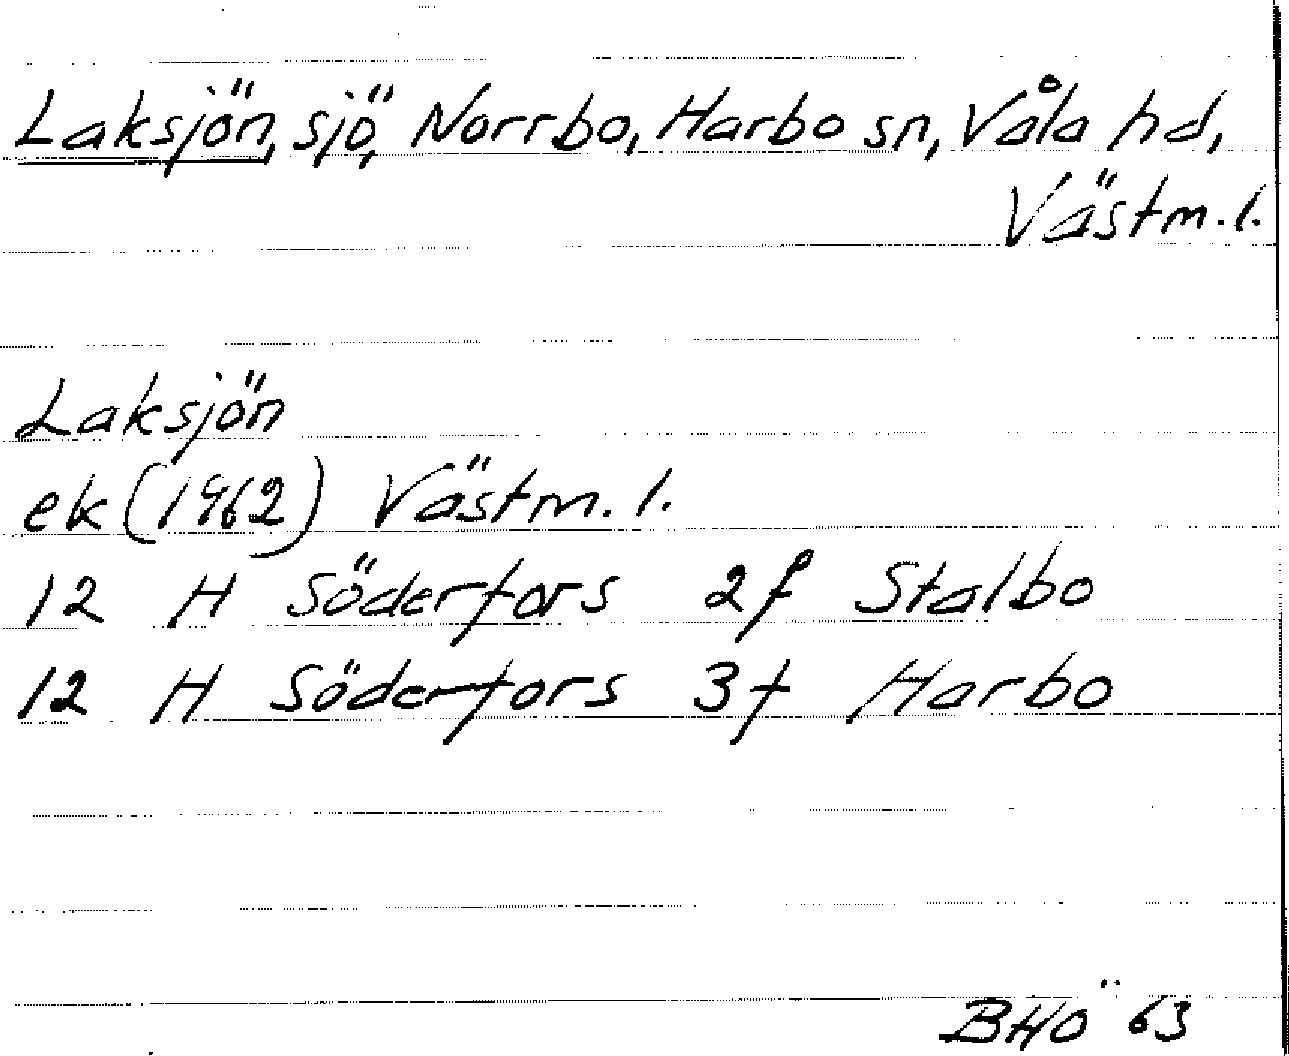 Laksjön, sjö, Norrbo, Harbo sn, Våla hd,
Västm. l.
Laksjön
ek (1962) Västm. l.
12 H Söderfors 2f Stalbo
12 H Söderfors 3f Harbo
BHÖ 63